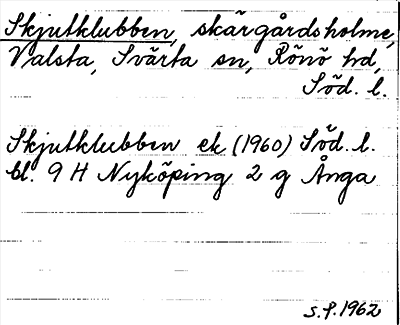 Skjutklubben, skärgårdsholme,
Valsta, Svärta sn, Rönö hd,
Söd. l.
Skjutklubben ek (1960) Söd. l.
bl. 9 H Nyköping 2 g Ånga
s.f. 1962